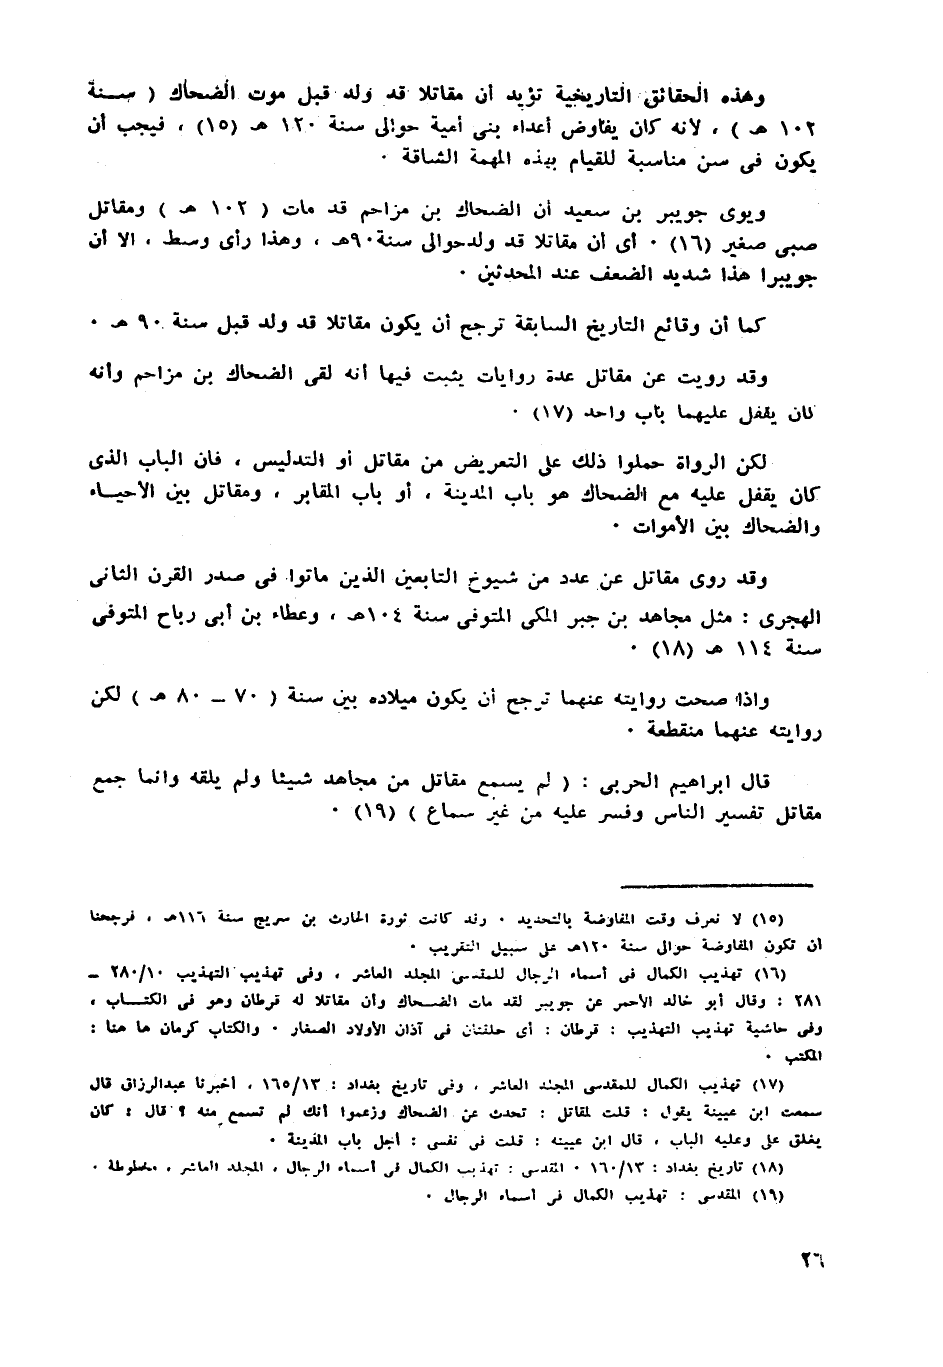 وهذه الحقائق التاريخية تؤيد أن مقاتلا قد ولد قبل موت الضحاك ( سـنة
١٠٢ هـ ) ، لأنه كان يفاوض أعداء بنى أمية حوالى سنة ١٢٠ هـ (١٥) ، فيجب أن
يكون فى سن مناسبة للقيام بهذه المهمة الشاقة ٠
ويوى جويبر بن سعيد أن الضحاك بن مزاحم قد مات ( ١٠٢ هـ ) ومقاتل
صبى صغير (١٦) ٠ أى أن مقاتلا قد ولدحوالى سنة٩٠هـ ، وهذا رأى وسط ، الا أن
جويبرا هذا شديد الضعف عند المحدثين ٠
كما أن وقائع التاريخ السابقة ترجح أن يكون مقاتلا قد ولد قبل سنة ٩٠ هـ ٠
وقد رويت عن مقاتل عدة روايات يثبت فيها أنه لقى الضحاك بن مزاحم وأنه
كان يقفل عليهما باب واحد (١٧) ٠
لكن الرواة حملوا ذلك على التعريض من مقاتل أو التدليس ، فان الباب الذى
كان يقفل عليه مع الضحاك هو باب المدينة ، أو باب المقابر ، ومقاتل بين الأحيـاء
والضحاك بين الأموات ٠
وقد روى مقاتل عن عدد من شيوخ التابعين الذين ماتوا فى صدر القرن الثانى
الهجرى : مثل مجاهد بن جبر المكى المتوفى سنة ١٠٤هـ ، وعطاء بن أبى رباح المتوفى
سنة ١١٤ هـ (١٨) ٠
واذا صحت روايته عنهما ترجح أن يكون ميلاده بين سنة ( ٧٠ ــ ٨٠ هـ ) لكن
روايته عنهما منقطعة ٠
قال ابراهيم الحربى : ( لم يسمع مقاتل من مجاهد شيئا ولم يلقه وانما جمع
مقاتل تفسير الناس وفسر عليه من غير سماع ) (١٩) ٠
(١٥) لا نعرف وقت المفاوضة بالتحديد ٠ وقد كانت ثورة الحارث بن سريج سنة ١١٦هـ ، فرجحنا
أن تكون المفاوضة حوالى سنة ١٢٠هـ على سبيل التقريب ٠
(١٦) تهذيب الكمال فى أسماء الرجال للمقدسى المجلد العاشر ، وفى تهذيب التهذيب ٢٨٠/١٠ ــ
٢٨١ : وقال أبو خالد الأحمر عن جويبر لقد مات الضـحاك وأن مقاتلا له قرطان وهو فى الكتـــاب ،
وفى حاشية تهذيب التهذيب : قرطان : أى حلقتان فى آذان الأولاد الصغار ٠ والكتاب كرمان ها هنا :
المكتب ٠
(١٧) تهذيب الكمال للمقدسى المجلد العاشر ، وفى تاريخ بغداد : ١٦٥/١٣ ، أخبرنا عبدالرزاق قال
سمعت ابن عيينة يقول : قلت لمقاتل : تحدث عن الضحاك وزعموا أنك لم تسمع منه ؟ قال : كان
يغلق على وعليه الباب ، قال ابن عيينه : قلت فى نفسى : أجل باب المدينة ٠
(١٨) تاريخ بغداد : ١٦٠/١٣ ٠ المقدسى : تهذيب الكمال فى أسماء الرجال ، المجلد العاشر ، مخطوطة ٠
(١٩) المقدسى : تهذيب الكمال فى أسماء الرجال ٠
٢٦